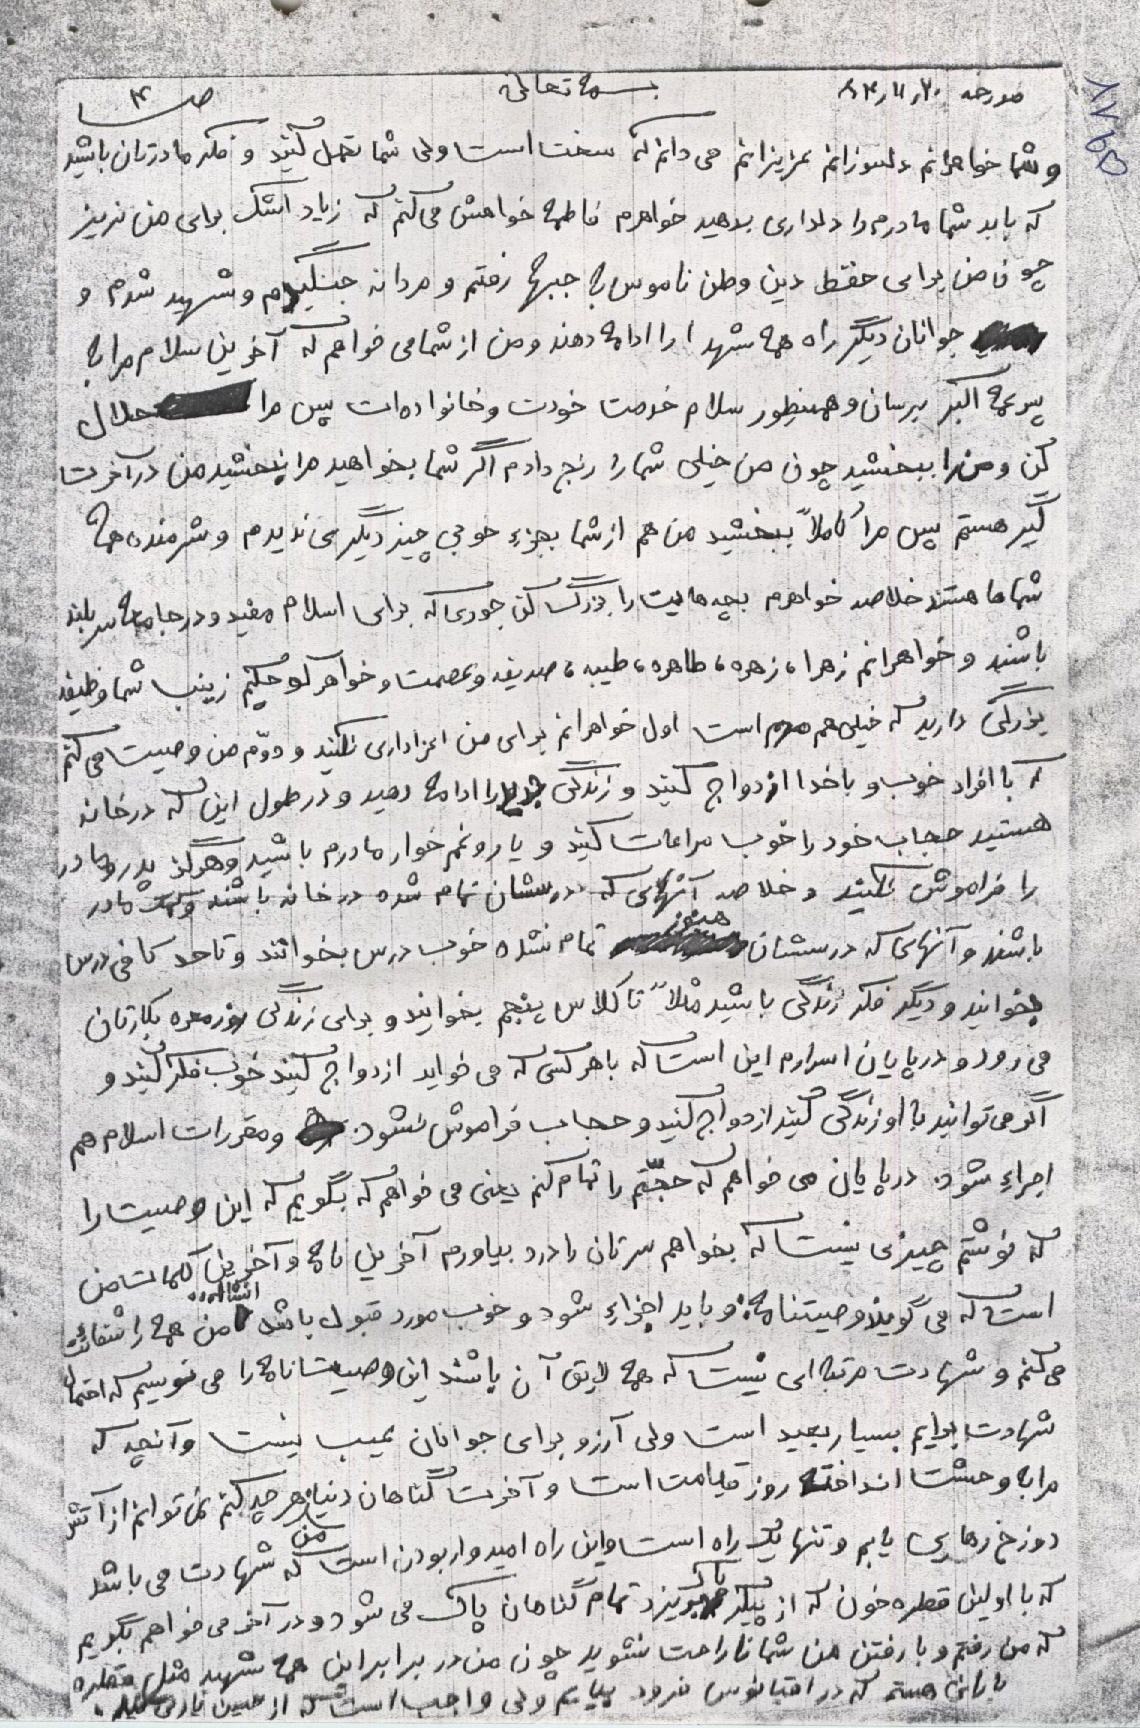 مورخه ۲۰/۱۱/۶۴ بسمه تعالی ص ۴
و شما خواهرانم دلسوزانم عزیزانم می دانم که سخت است ولی شما تحمل کنید و فکر مادرتان باشید
که باید شما مادرم را دلداری بدهید خواهرم فاطمه خواهش می کنم که زیاد اشک برای من نریز
چون من برای حفظ دین وطن ناموس به جبهه رفتم و مردانه جنگیدم و شهید شدم و
جوانان دیگر راه همه شهدا را ادامه دهند و من از شما می خواهم که آخرین سلام مرا به
پسر عمه اکبر برسان و همینطور سلام خدمت خودت و خانواده ات پس مرا حلال
کن و من را ببخشید چون من خیلی شما را رنج دادم اگر شما بخواهید مرا نبخشید من در آخرت
گیر هستم پس مرا کاملاً ببخشید من هم از شما بجزء خوبی چیز دیگری ندیدم و شرمنده همه
شماها هستم خلاصه خواهرم بچه هایت را بزرگ کن جوری که برای اسلام مفید و در جامعه سربلند
باشند و خواهرانم زهرا، زهره، طاهره، طیبه، صدیقه و عصمت و خواهر کوچکم زینب شما وظیفه
بزرگی دارید که خیلی هم مهم است اول خواهرانم برای من اعزاداری نکنید و دوّم من وصیت می کنم
که با افراد خوب و با خدا ازدواج کنید و زندگی را ادامه دهید و در طول این که در خانه
هستید حجاب خود را خوب مراعات کنید و یار و غم خوار مادرم باشید و هرگز پدر و مادر
را فراموش نکنید و خلاصه آنهایی که درسشان تمام شده در خانه باشند و کمک مادر
باشند و آنهایی که درسشان هنوز تمام نشده خوب درس بخوانند و تا حد کافی درس
بخوانید و دیگر فکر زندگی باشید مثلاً تا کلاس پنجم بخوانید و برای زندگی روزمره بکارتان
می رود و در پایان اسرارم این است که با هر کسی که می خواید ازدواج کنید خوب فکر کنید و
اگر می توانید با او زندگی کنید ازدواج کنید و حجاب فراموش نشود. و مقررات اسلام هم
اجراء شود. در پایان می خواهم که حجّتم را تمام کنم یعنی می خواهم که بگویم که این وصیت را
که نوشتم چیزی نیست که بخواهم سرتان را درد بیاورم آخرین نامه و آخرین کلمات من
است که می گویند وصیتنامه و باید اجراء شود و خوب مورد قبول باشد انشااله.. من همه را شفاعت
می کنم و شهادت مرتبه ای نیست که همه لایق آن باشند این وصیت نامه را می نویسم که احتمال
شهادت برایم بسیار بعید است ولی آرزو برای جوانان عیب نیست و آنچه که
مرا به وحشت انداخته روز قیامت است و آخرت گناهان دنیا هر چه کنم نمی توانم از آتش
دوزخ رهایی یابم و تنها یک راه است و این راه امیدوار بودن من است که شهادت می باشد
که با اولین قطره خون که از پیکر پاک بریزد تمام گناهان پاک می شود و در آخر می خواهم بگویم
که من رفتم و با رفتن من شما ناراحت نشوید چون من در برابر این همه شهید مثل قطره
بارانی هستم که در اقیانوس فرود بیایم ولی واجب است که از حسین